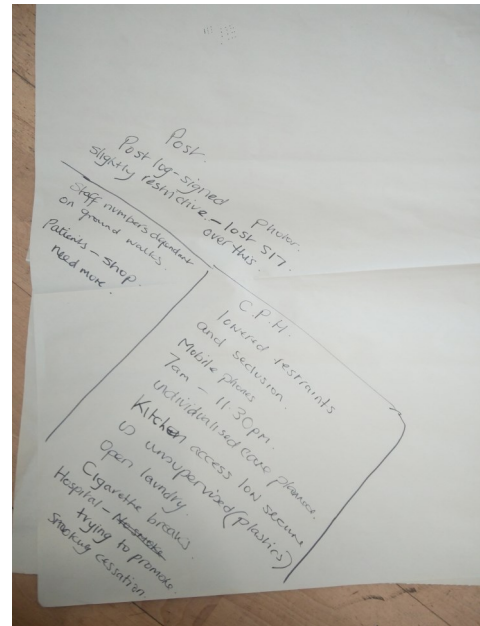 Post.
Post log-signed
slightly restrictive. - lost S17.
over this.
Staff numbers dependant
on ground walks.
Patients - shop.
Need more.
C.P.H.
lowered restraints
and seclusion.
Mobile phones
7am - 11.30pm.
individualised care planned.
Kitchen access low secure
unsupervised (plastics)
Open laundry.
Cigarette breaks.
Hospital -
trying to promote
Smoking cessation.